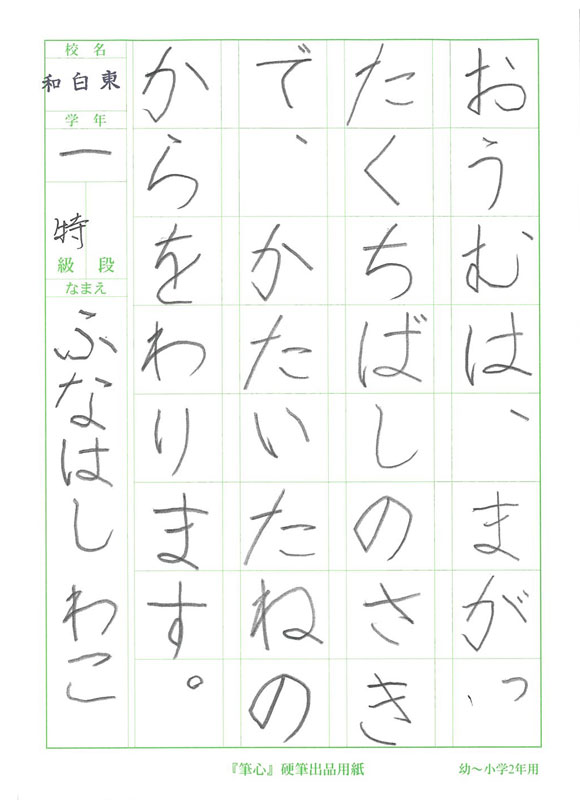 おうむは、まがっ
たくちばしのさき
で、かたいたねの
からをわります。
校名
和白東
学年
一
特
級段
なまえ
ふなはしわこ
『筆心』硬筆出品用紙
幼〜小学2年用